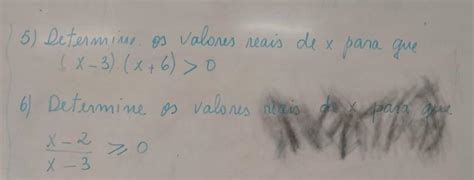 5) Determine. os valores reais de x para que
(x-3) (x+6) > 0
6) Determine os valores reais de x para que
x-2
x-3 ≥ 0